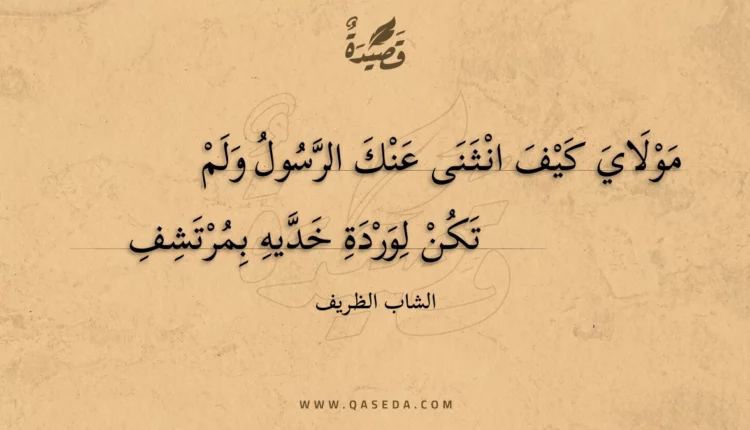 قَصِيْدَةٌ
مَوْلَايَ كَيْفَ انْثَنَى عَنْكَ الرَّسُولُ وَلَمْ
تَكُنْ لِوَرْدَةِ خَدَّيهِ بِمُرْتَشِفِ
الشاب الظريف
WWW.QASEDA.COM